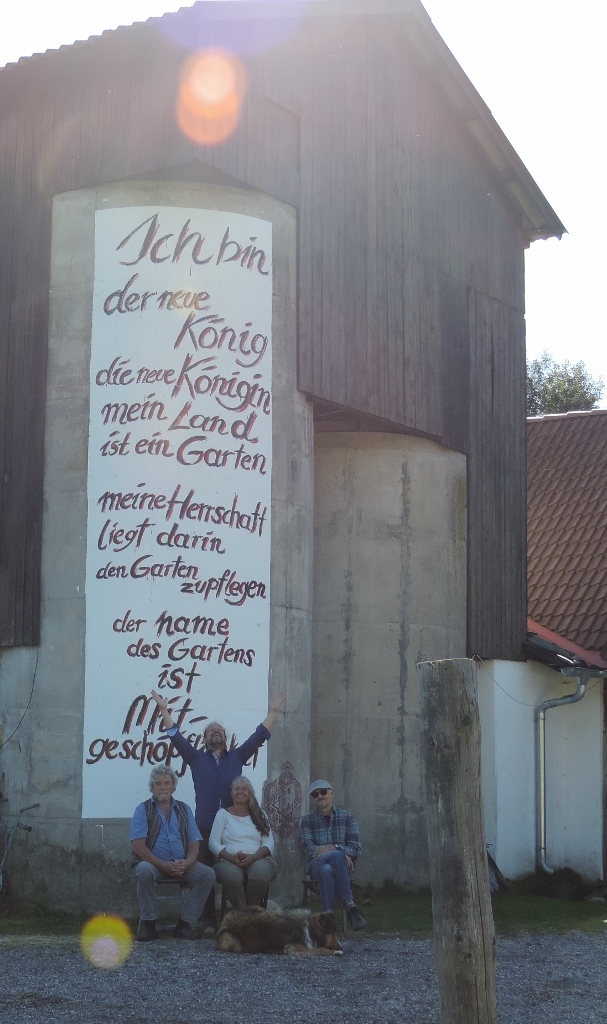 Ich bin
der neue
König
die neue Königin
mein Land
ist ein Garten
meine Herrschaft
liegt darin
den Garten
zu pflegen
der name
des Gartens
ist
Mit-